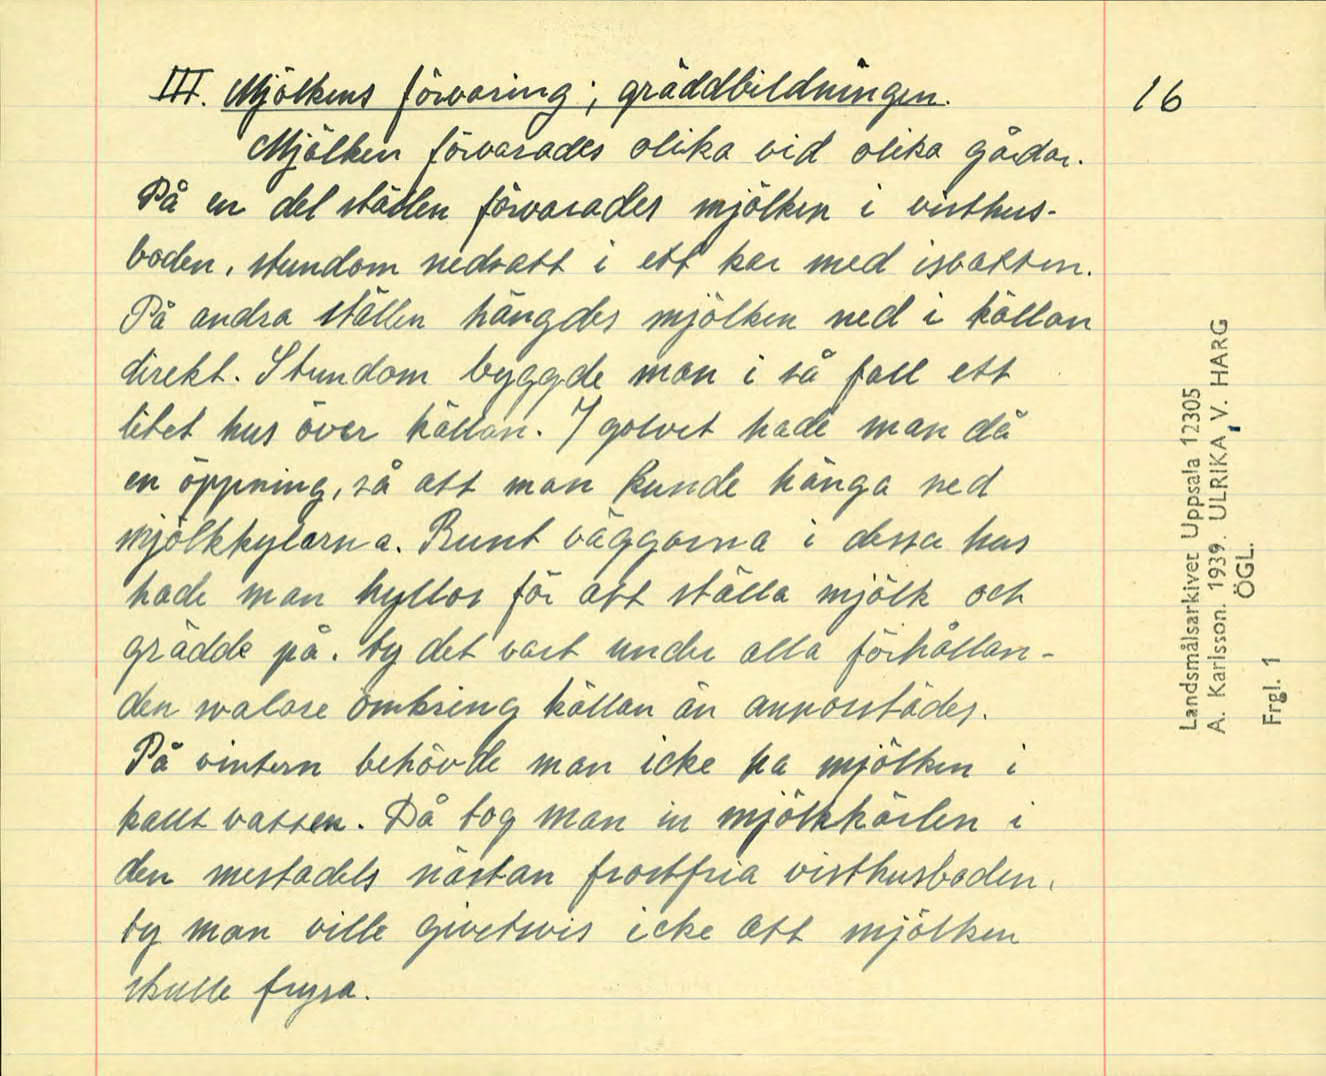 III. Mjölkens förvaring; gräddbildningen.
16
Mjölken förvarades olika vid olika gårdar.
På en del ställen förvarades mjölken i visthus-
boden, stundom nedsatt i ett kar med isvatten.
På andra ställen hängdes mjölken ned i källan
direkt. Stundom byggde man i så fall ett
litet hus över källan. I golvet hade man då
en öppning, så att man kunde hänga ned
mjölkkylarna. Runt väggarna i dessa hus
hade man hyllor för att ställa mjölk och
grädde på. ty det vart under alla förhållan-
den svalare omkring källan än annorstädes.
På vintern behövde man icke ha mjölken i
kallt vatten. Då tog man in mjölkkärlen i
den mestadels nästan frostfria visthusboden,
ty man ville givetvis icke att mjölken
skulle frysa.
Landsmålsarkivet Uppsala 12305
A. Karlsson. 1939. ULRIKA, V. HARG
ÖGL.
Frgl. 1